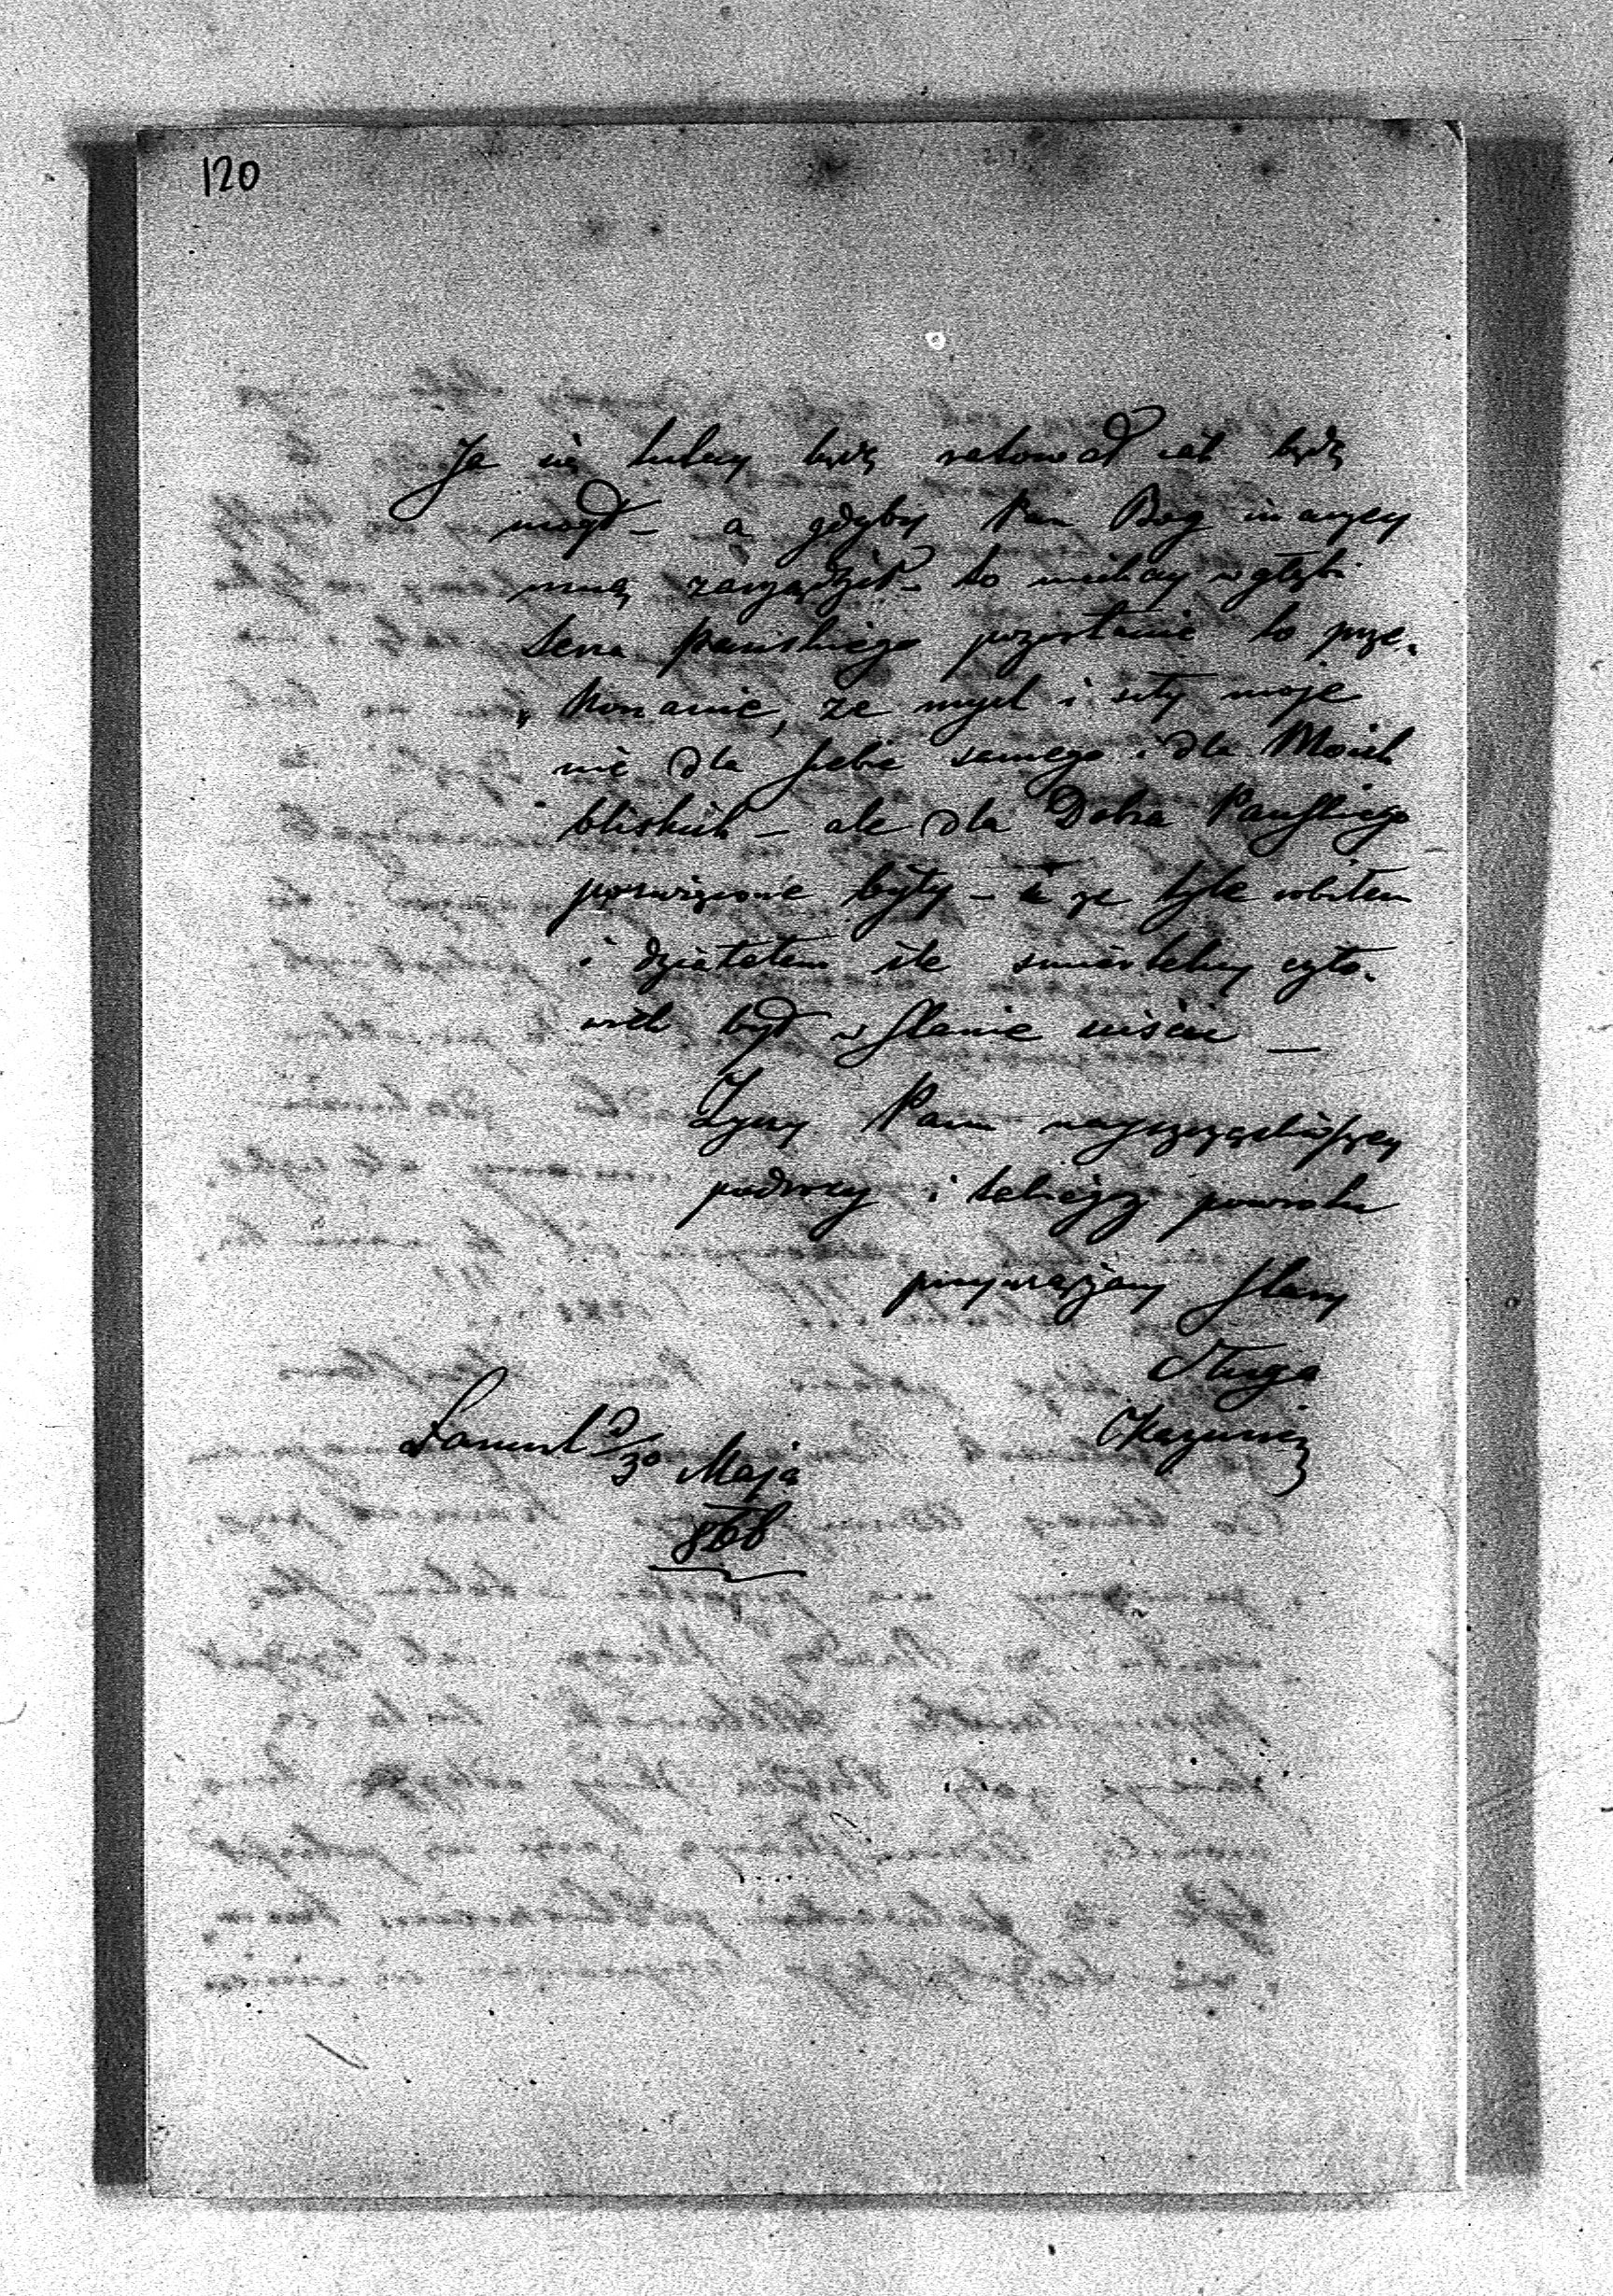 120
Ja się tutay będę ratował jak będę
mógł – a gdyby Pan Bog inaczey
mną zarządził – to niechay w głębi
Serca Pańskiego pozostanie to prze-
„konanie, że myśl i siły moje
nie dla siebie samego i dla Moich
bliskich – ale dla Dobra Pańskiego
poswięcone były – że tyle robiłem
i działałem ile smiertelny czło-
wiek był w stanie –
Życzę Panu nayszczęśliwszey
podrozy i takiegoż powrotu
przywiązany stary
Sługa
Kazimirz
Łancut d/30 Maja
866